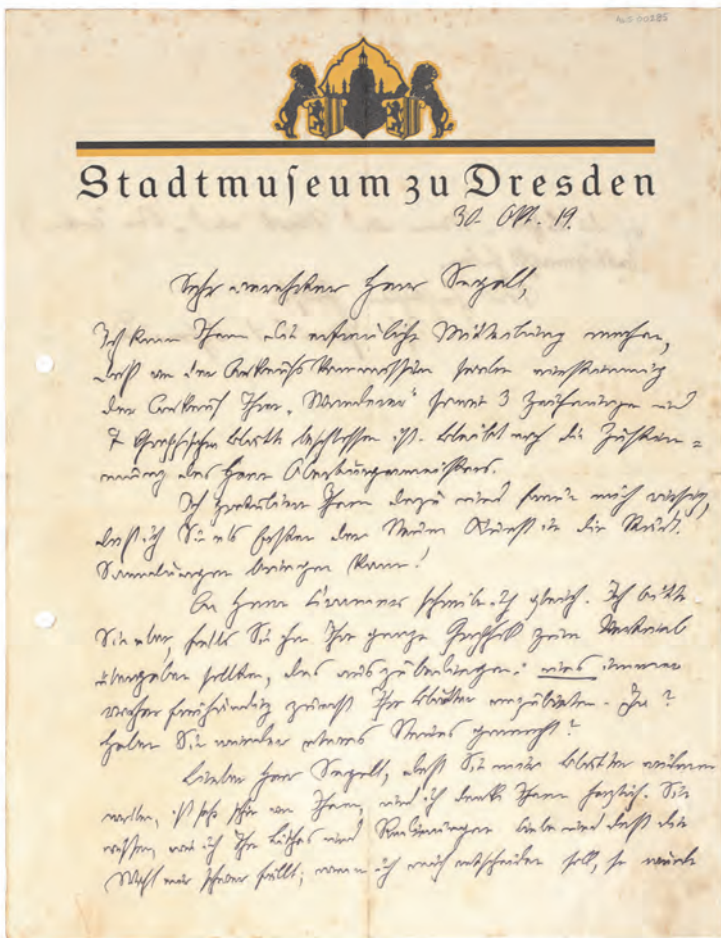 Stadtmuſeum zu Dresden
30. Okt. 19.
Sehr verehrter Herr Segall,
Ich kann Ihnen die erfreuliche Mitteilung machen,
daß von der Ankaufs Kommission soeben einstimmig
der Ankauf Ihrer „Wanderer“ sowie 3 Zeichnungen und
7 Graphischer Blätter beschlossen ist. Bleibt noch die Zustim=
mung des Herrn Oberbürgermeisters.
Ich gratuliere Ihnen dazu und freue mich riesig,
daß ich Sie als Ersten der Neuen Kunst in die Städt.
Sammlungen bringen kann!
An Herrn schreibe ich gleich. Ich bitte
Sie aber, falls Sie ihm Ihre ganze Graphik zum Verkauf
übergeben sollten, das auszubedingen: uns immer
vorher freihändig zunächst Ihre Blätter anzubieten. Ja?
Haben Sie wieder etwas Neues gemacht?
Lieber Herr Segall, daß Sie mir Blätter widmen
wollen, ist sehr schön von Ihnen, und ich danke Ihnen herzlich. Sie
wissen, wie ich Ihre Lithos und Radierungen liebe und daß die
Wahl mir schwer fällt; wenn ich mich entscheiden soll, so würde